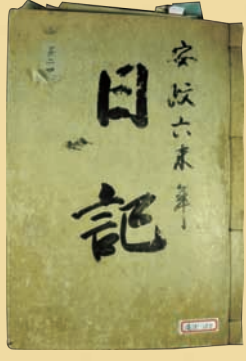 安政六未年
日記